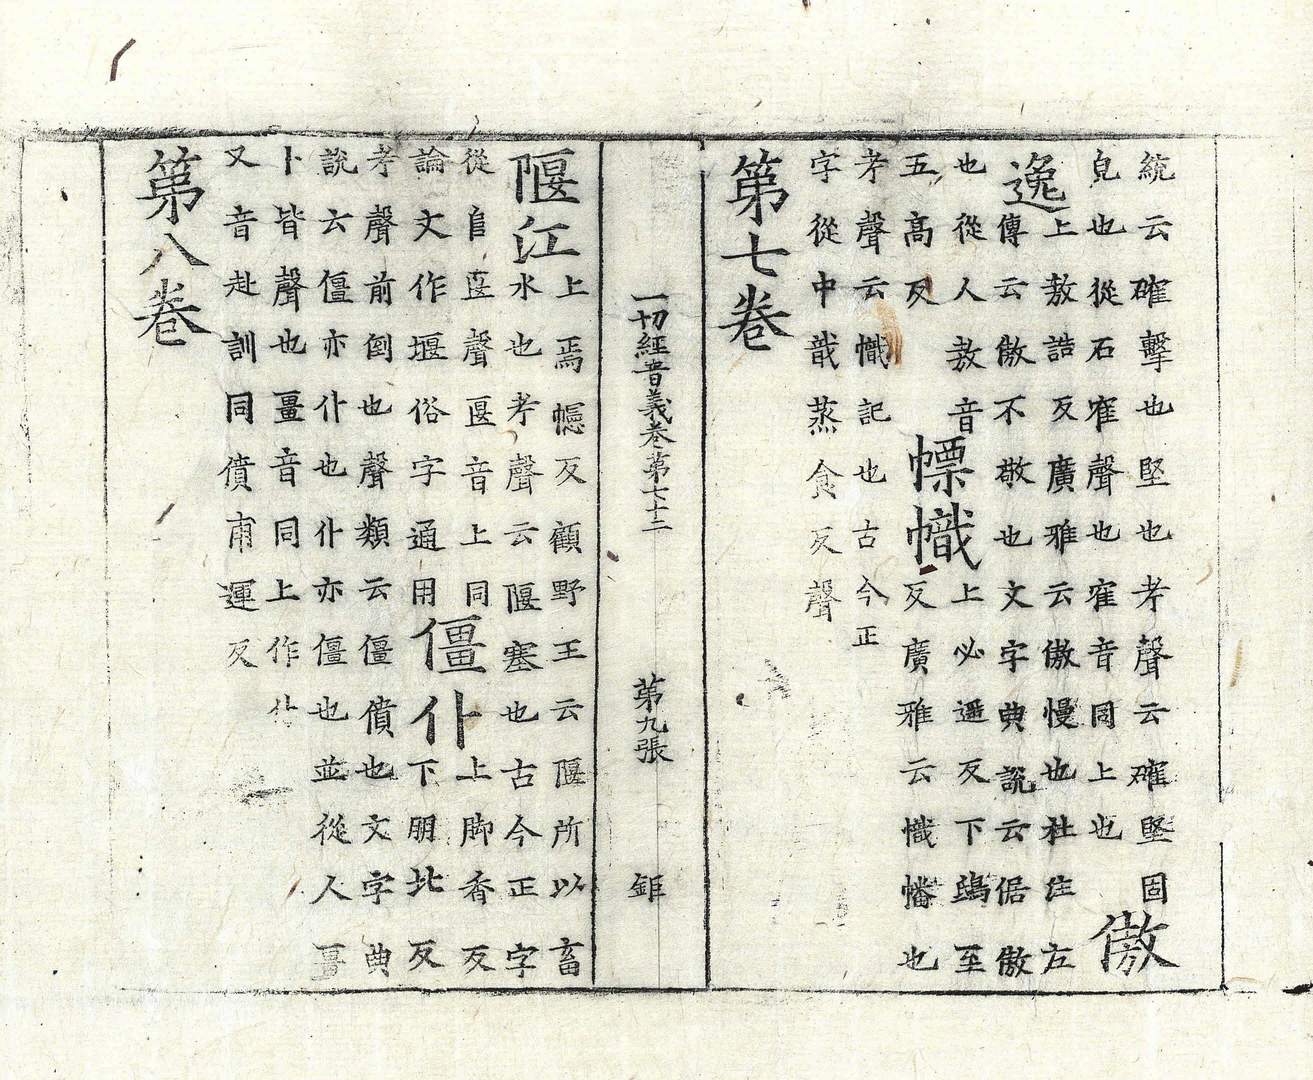 統云確擊也堅也考聲云確堅固
皃也從石隺聲也隺音同上也
傲逸
上敖誥反廣雅云傲慢也杜注左
傳云傲不敬也文字典說云倨傲
也從人敖音
五高反
幖幟
上必遥反下鴟至
反廣雅云幟幡也
考聲云幟記也古今正
字從中戠蒸食反聲
第七卷
一切經音義卷第七十二 第九張 鉅
隁江
上焉幰反顧野王云隁所以畜
水也考聲云隁塞也古今正字
從𨸏匽聲匽音上同
論文作堰俗字通用
僵仆
上脚香反
下朋北反
考聲前倒也聲類云僵僨也文字典
說六僵亦仆也仆亦僵也並從人畺
卜皆聲也畺音同上作仆
又音赴訓同僨甫運反
第八卷